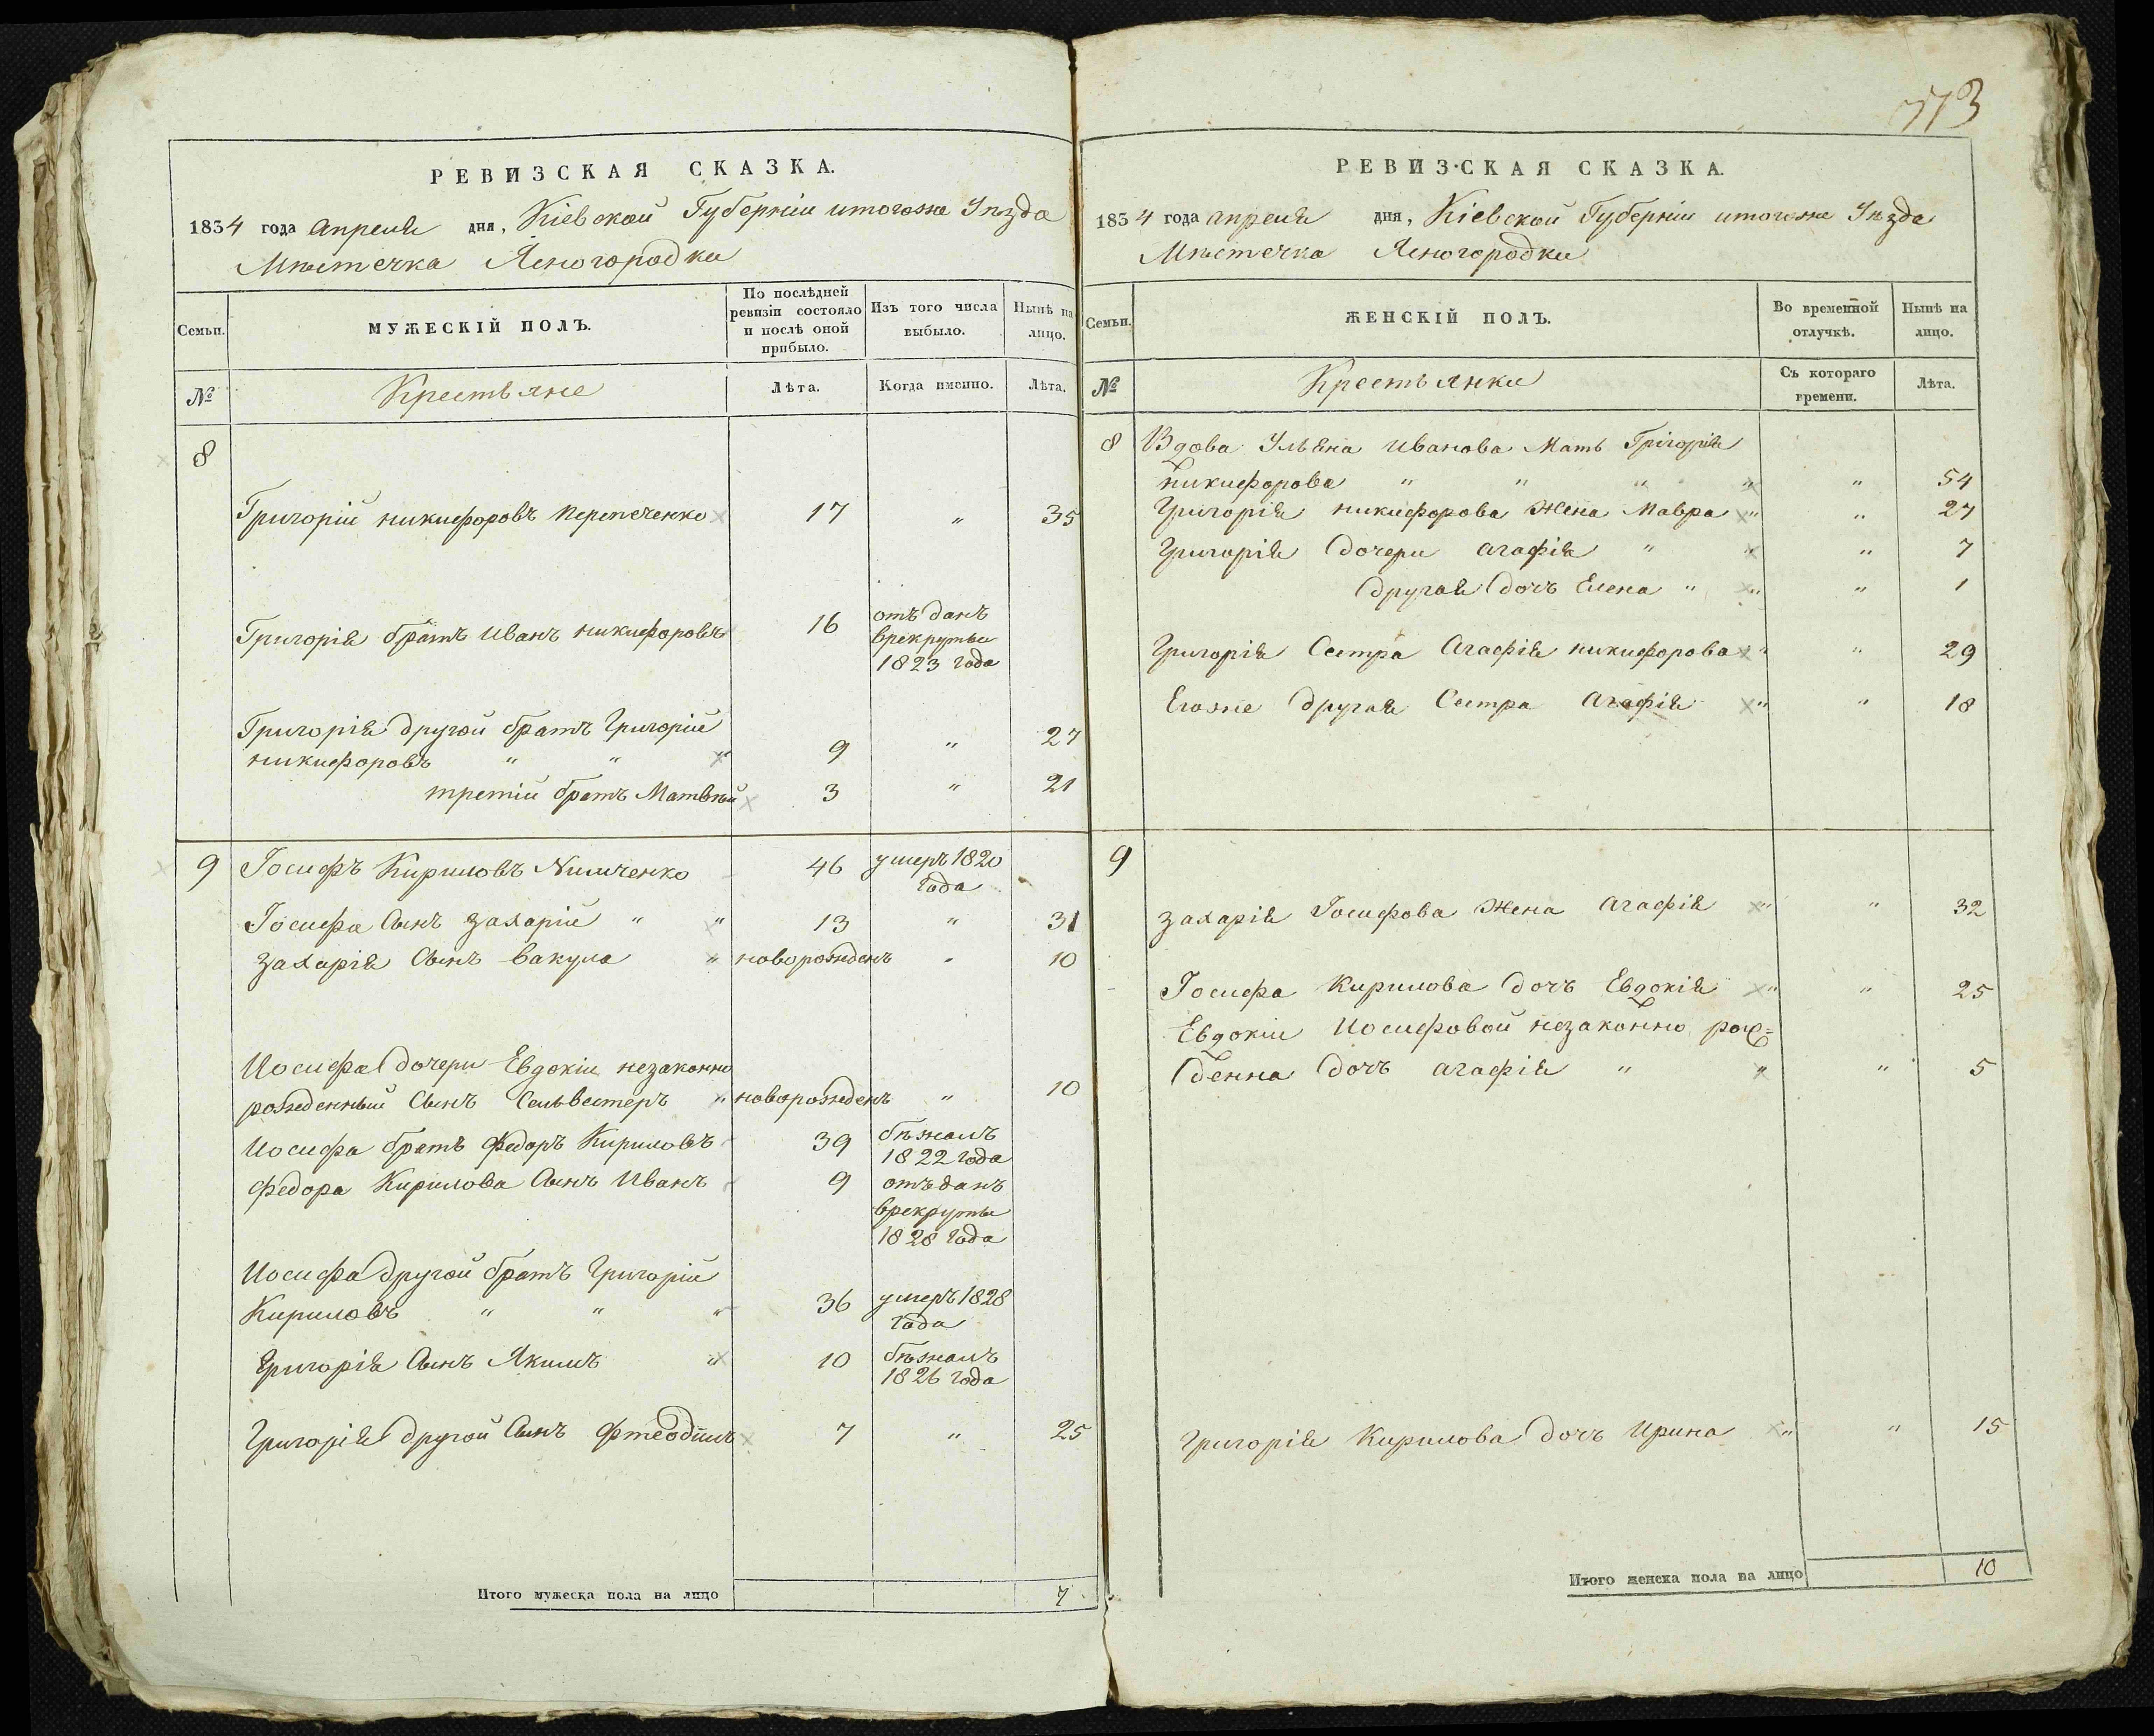 РЕВИЗСКАЯ СКАЗКА.
1834 года апреля дня, Кіевской Губерніи итогоже Уѣзда
Мѣстечка Ясногородки
Семьи.
МУЖЕСКІЙ ПОЛЪ.
По послѣдней
ревизіи состояло
и послѣ оной
прибыло.
Изъ того числа
выбыло.
Нынѣ на
лицо.
№
Крестьяне
Лѣта.
Когда именно.
Лѣта.
8
Григорій никифоровъ Перепеченко 17 " 35
Григорія братъ Иванъ никифоровъ 16 отъ данъ
врекруты
1823 года
Григорія другой братъ Григорій
никифоровъ " " " 9 " 27
третій братъ Матвѣй 3 " 21
9 Іосифъ Кириловъ 46 умеръ 1820
года
Іосифа Сынъ Захарій " " 13 " 31
Захарія Сынъ Вакула " новорожденъ " 10
Иосифа дочери Евдокіи незаконно
рожденный Сынъ Сельвестеръ " новорожденъ " 10
Иосифа братъ Федоръ Кириловъ 39 бѣжалъ
1822 года
Федора Кирилова Сынъ Иванъ 9 отъ данъ
врекруты
1828 года
Иосифа другой братъ Григорій
Кириловъ " " " 36 умеръ 1828
года
Григорія Сынъ Якимъ " 10 бѣжалъ
1826 года
Григорія другой Сынъ 7 " 25
Итого мужеска пола на лицо 7
773
РЕВИЗСКАЯ СКАЗКА.
1834 года апреля дня, Кіевской Губерніи итогоже Уѣзда
Мѣстечка Ясногородки
Семьи.
ЖЕНСКІЙ ПОЛЪ.
Во временной
отлучкѣ.
Нынѣ на
лицо.
№
Крестьянки
Съ котораго
времени.
Лѣта.
8 Вдова Ульяна Иванова Мать Григорія
никифорова " " " " " 54
Григорія никифорова Жена Мавра " " 27
Григорія дочери агафія " " " 7
другая дочъ Елена " " " 1
Григорія Сестра Агафія никифорова " " 29
Егоже другая Сестра агафія " " 18
9
Захарія Іосифова Жена агафія " " 32
Іосифа Кирилова дочъ Евдокія " " 25
Евдокіи Иосифовой незаконно рож=
денна дочъ агафія " " " 5
Григорія Кирилова дочъ Ирина " " 15
Итого женска пола на лицо 10